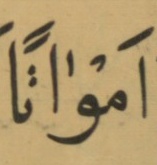 اَمْوَاتًا